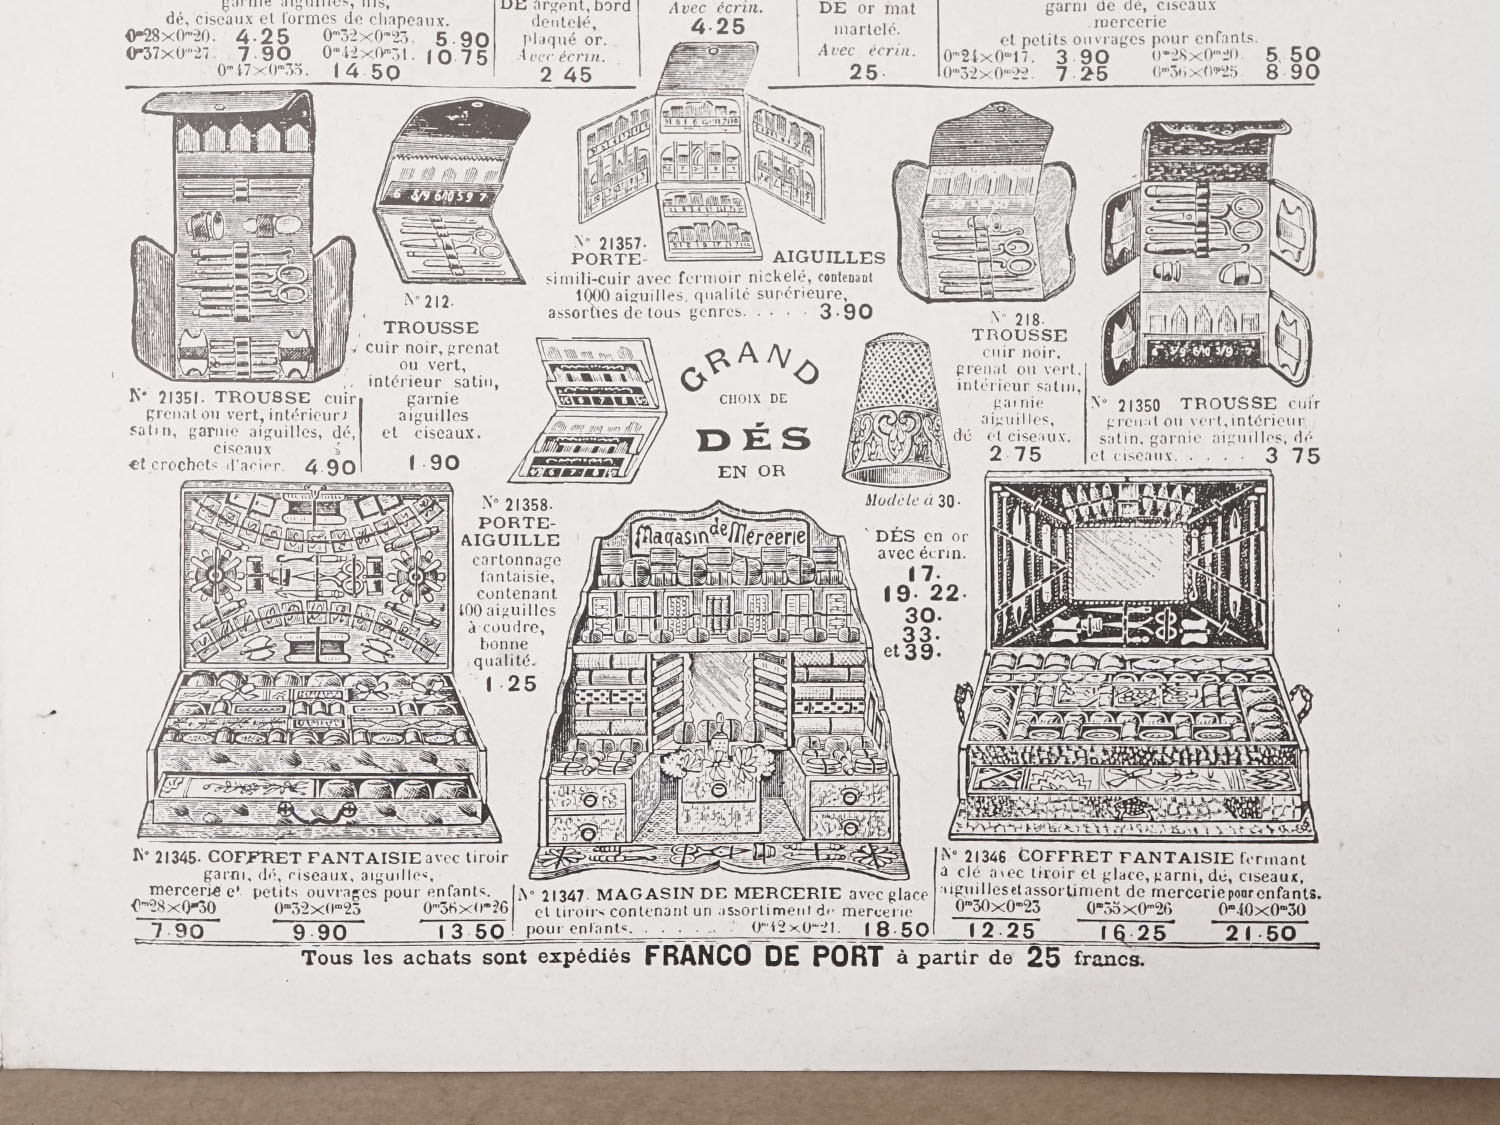 garnie aiguilles, fils,
dé, ciseaux et formes de chapeaux.
0m28×0m20. 4.25 0m32×0m23. 5.90
0m37×0m27. 7.90 0m42×0m31. 10.75
0m47×0m35. 14.50
DE argent, bord
dentelé,
plaqué or.
Avec écrin.
2 45
Avec écrin.
4.25
DE or mat
martelé.
Avec écrin.
25.
garni de dé, ciseaux
mercerie
et petits ouvrages pour enfants.
0m24×0m17. 3.90 0m28×0m20. 5.50
0m32×0m22. 7.25 0m36×0m25. 8.90
No 21357.
PORTE-AIGUILLES
simili-cuir avec fermoir nickelé, contenant
1000 aiguilles, qualité supérieure,
assorties de tous genres. . . . . 3.90
No 212.
TROUSSE
cuir noir, grenat
ou vert,
intérieur satin,
garnie
aiguilles
et ciseaux.
1.90
No 218.
TROUSSE
cuir noir,
grenat ou vert,
intérieur satin,
garnie
aiguilles,
dé et ciseaux.
2 75
No 21351. TROUSSE cuir
grenat ou vert, intérieur
satin, garnie aiguilles, dé,
ciseaux
et crochets d'acier. 4.90
GRAND
CHOIX DE
DÉS
EN OR
No 21350 TROUSSE cuir
grenat ou vert, intérieur
satin, garnie aiguilles, dé
et ciseaux. . . . . 3 75
Modèle à 30.
No 21358.
PORTE-
AIGUILLE
cartonnage
fantaisie,
contenant
400 aiguilles
à coudre,
bonne
qualité.
1.25
Magasin de Mercerie
DÉS en or
avec écrin.
17.
19. 22.
30.
33.
et 39.
No 21345. COFFRET FANTAISIE avec tiroir
garni, dé, ciseaux, aiguilles,
mercerie et petits ouvrages pour enfants.
0m28×0m30 0m32×0m23 0m36×0m26
7.90 9.90 13.50
No 21347. MAGASIN DE MERCERIE avec glace
et tiroirs contenant un assortiment de mercerie
pour enfants. . . . . . . 0m42×0m21. 18.50
No 21346 COFFRET FANTAISIE fermant
à clé avec tiroir et glace, garni, dé, ciseaux,
aiguilles et assortiment de mercerie pour enfants.
0m30×0m23 0m35×0m26 0m40×0m30
12.25 16.25 21.50
Tous les achats sont expédiés FRANCO DE PORT à partir de 25 francs.